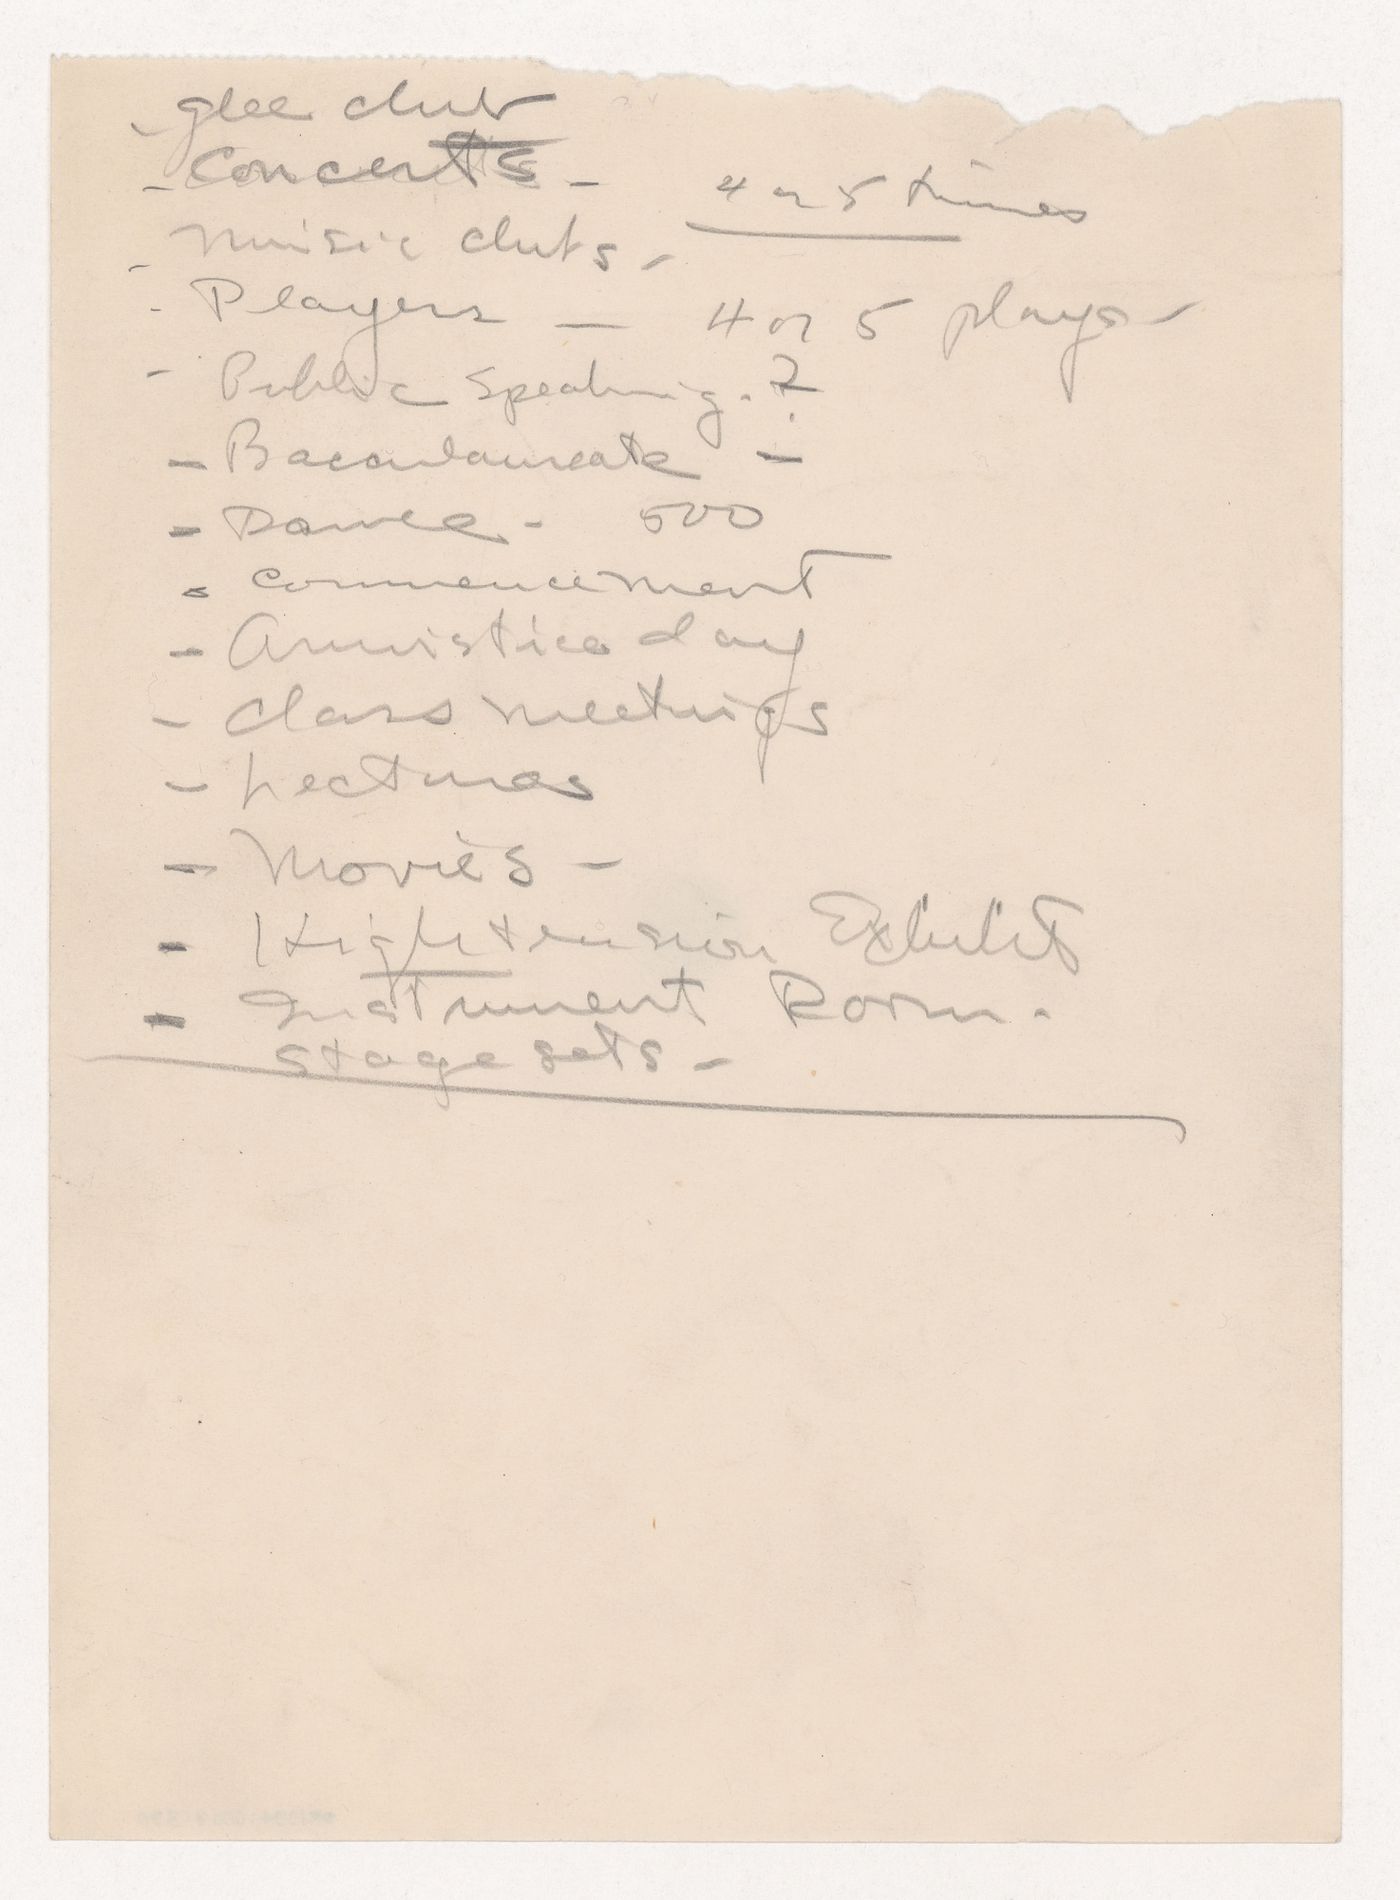 - glee club
- Concerts - 4 or 5 times
- Music clubs -
- Players - 4 or 5 plays -
- Public Speaking. ?
- Baccalaureate -
- Dance - 500
- commencement
- Armistice day
- Class meetings
- Lectures
- Movies -
- High tension Exhibit
- Instrument Room.
stage sets -